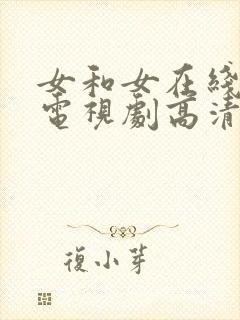 女和女在綫
電視劇高清
復小芽